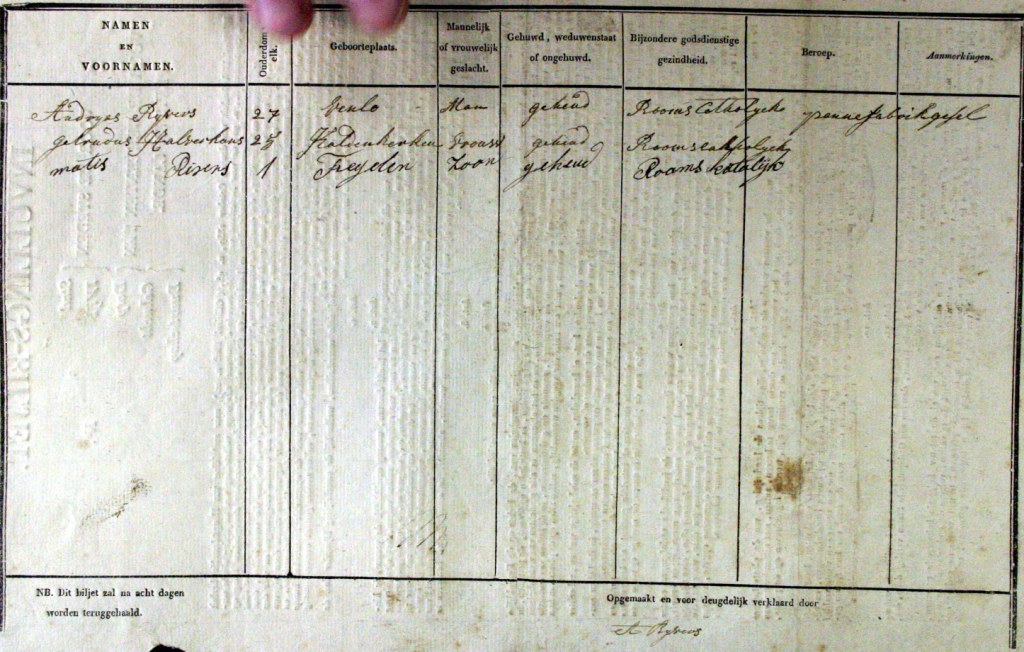 NAMEN
EN
VOORNAMEN.
Ouderdom
elk.
Geboorteplaats.
Mannelijk
of vrouwelijk
geslacht.
Gehuwd, weduwenstaat
of ongehuwd.
Bijzondere godsdienstige
gezindheid.
Beroep.
Aanmerkingen.
27 Venlo Man gehuud Rooms Catholyck pennefabrikgesel
getrudus Halverhous 25 Haldenkerken gehuud
matis Rivers 1 Tegelen Zoon Rooms katolijk
NB. Dit biljet zal na acht dagen
worden teruggehaald.
Opgemaakt en voor deugdelijk verklaard door
A Ryvers